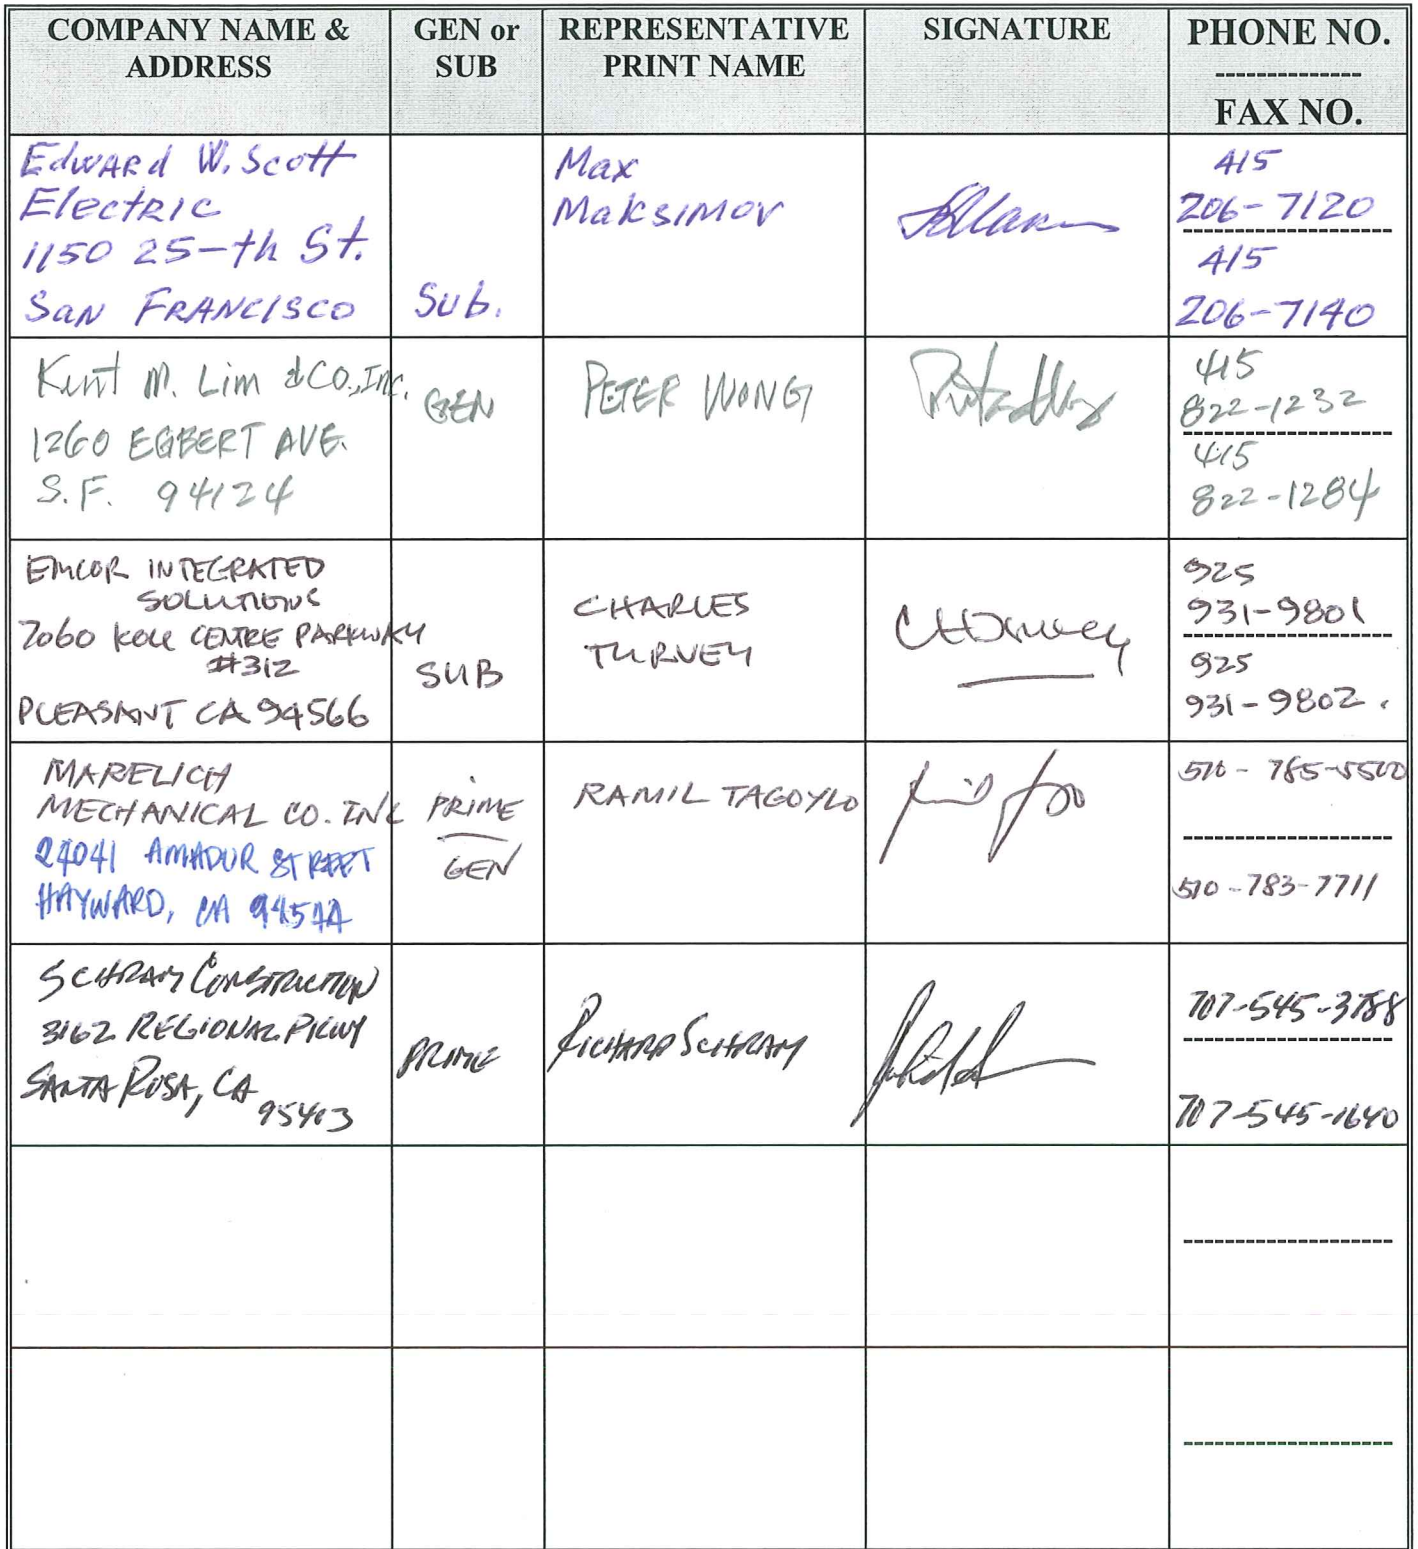 COMPANY NAME &
ADDRESS
GEN or
SUB
REPRESENTATIVE
PRINT NAME
SIGNATURE
PHONE NO.
--------------
FAX NO.
Edward W. Scott
Electric
1150 25-th St.
San Francisco
Sub.
Max
Maksimov
415
206-7120
415
206-7140
Kent M. Lim & CO., Inc.
1260 EGBERT AVE.
S.F. 94124
GEN
PETER WONG
415
822-1232
415
822-1284
EMCOR INTEGRATED
SOLUTIONS
7060 Koll CENTRE PARKWAY
#312
PLEASANT CA 94566
SUB
CHARLES
TURVEY
925
931-9801
925
931-9802.
MARELICH
MECHANICAL CO. INC
24041 AMADOR STREET
HAYWARD, CA 94544
PRIME
GEN
RAMIL TAGOYLO
510-785-5500
510-783-7711
SCHRAM CONSTRUCTION
3162 REGIONAL PKWY
SANTA ROSA, CA
95403
PRIME
RICHARD SCHRAM
707-545-3788
707-545-1640